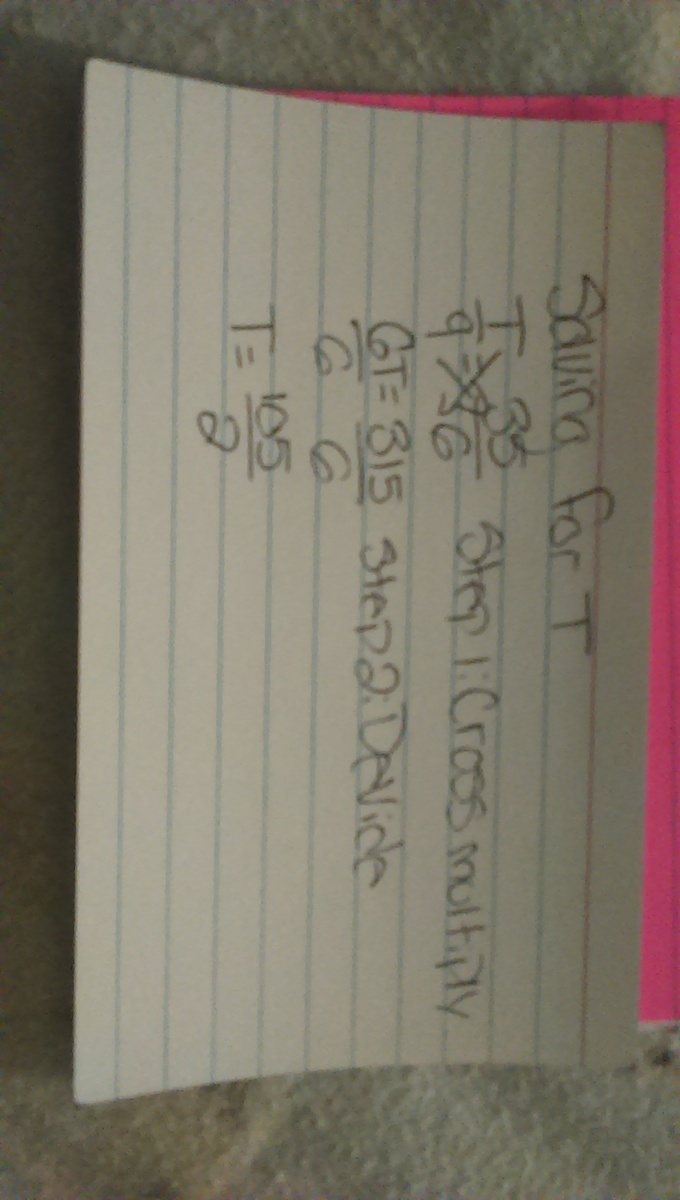 Solving for T
T/9 = 35/6 Step 1: Cross multiply
6T/6 = 315/6 Step 2: Devide
T = 105/2